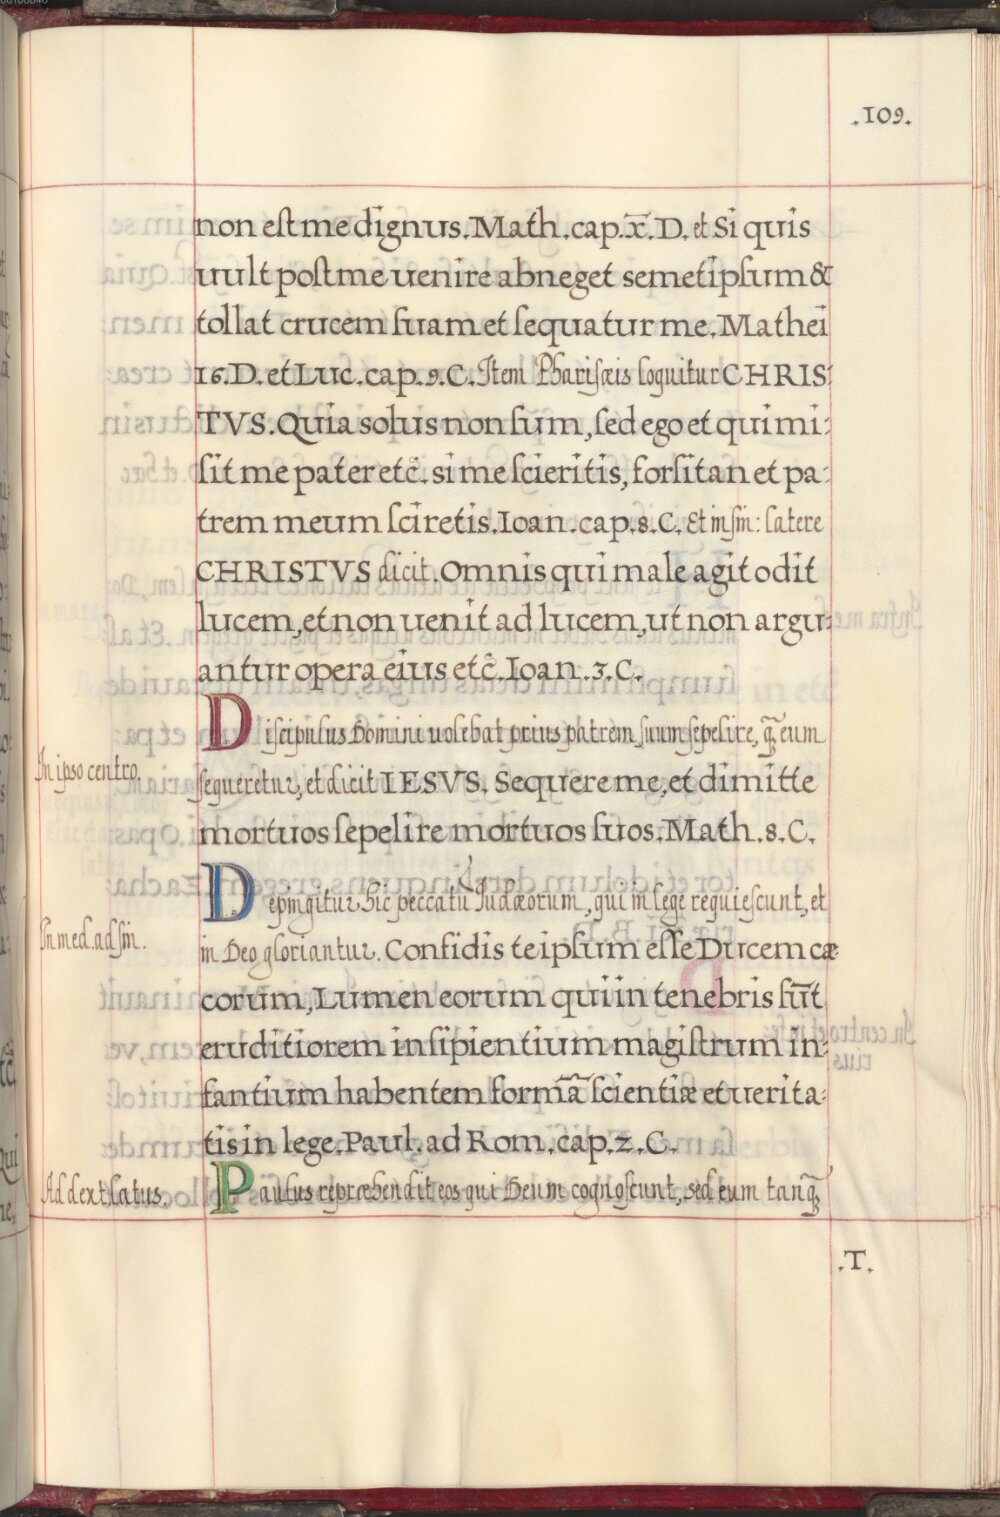 .109.
non est me dignus. Math. cap. x̅. D. et Si quis
uult post me uenire abneget semetipsum &
tollat crucem suam et sequatur me. Mathei
16. D. et Luc. cap. 9. C. Item Pharisæis loquitur CHRIS:
TVS. Quia solus non sum, sed ego et qui mi:
sit me pater etc̄. si me scieritis, forsitan et pa:
trem meum sciretis. Ioan. cap. 8. C. Et in sin: latere
CHRISTVS dicit. Omnis qui male agit odit
lucem, et non uenit ad lucem, ut non argu:
antur opera eius etc̄. Ioan. 3. C.
Discipulus Domini uolebat prius patrem suum sepelire, q̃ eum
In ipso centro.
sequeretur, et dicit IESVS. Sequere me, et dimitte
mortuos sepelire mortuos suos. Math. 8. C.
Depingitur hic peccatū Iudæorum, qui in lege requiescunt, et
In med. ad sin.
in Deo gloriantur. Confidis te ipsum esse Ducem cæ:
corum, Lumen eorum qui in tenebris sūt
eruditiorem insipientium magistrum in:
fantium habentem formā scientiæ et uerita:
tis in lege. Paul. ad Rom. cap. 2. C.
Ad dext. latus.
Paulus repræhendit eos qui Deum cognoscunt, sed eum tanq̃
.T.